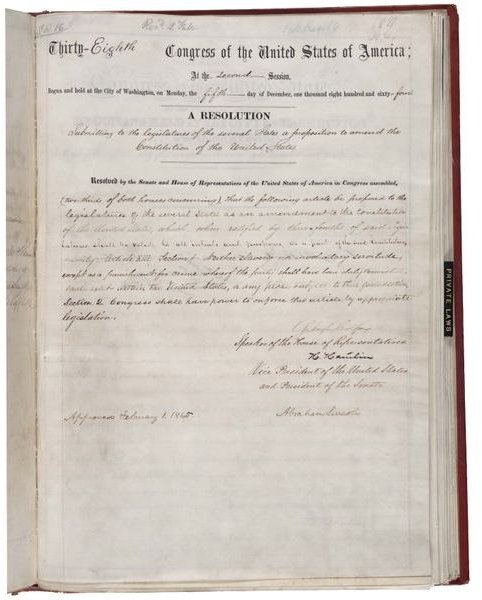 Thirty-Eighth Congress of the United States of America;
At the second Session,
Begun and held at the City of Washington, on Monday, the fifth day of December, one thousand eight hundred and sixty-four
A RESOLUTION
Submitting to the legislatures of the several States a proposition to amend the
Constitution of the United States
Resolved by the Senate and House of Representatives of the United States of America in Congress assembled,
(two-thirds of both houses concurring), That the following article be proposed to the
legislatures of the several States as an amendment to the constitution
of the United States, which, when ratified by three-fourths of said
legislatures shall be valid, to all intents and purposes, as a part of the said Constitution,
namely: Article XIII. Section 1. Neither slavery nor involuntary servitude,
except as a punishment for crime whereof the party shall have been duly convicted,
shall exist within the United States, or any place subject to their jurisdiction.
Section 2. Congress shall have power to enforce this article by appropriate
legislation.
Speaker of the House of Representatives
H. Hamlin
Vice President of the United States
and President of the Senate
Approved February 1. 1865
Abraham Lincoln
PRIVATE LAWS